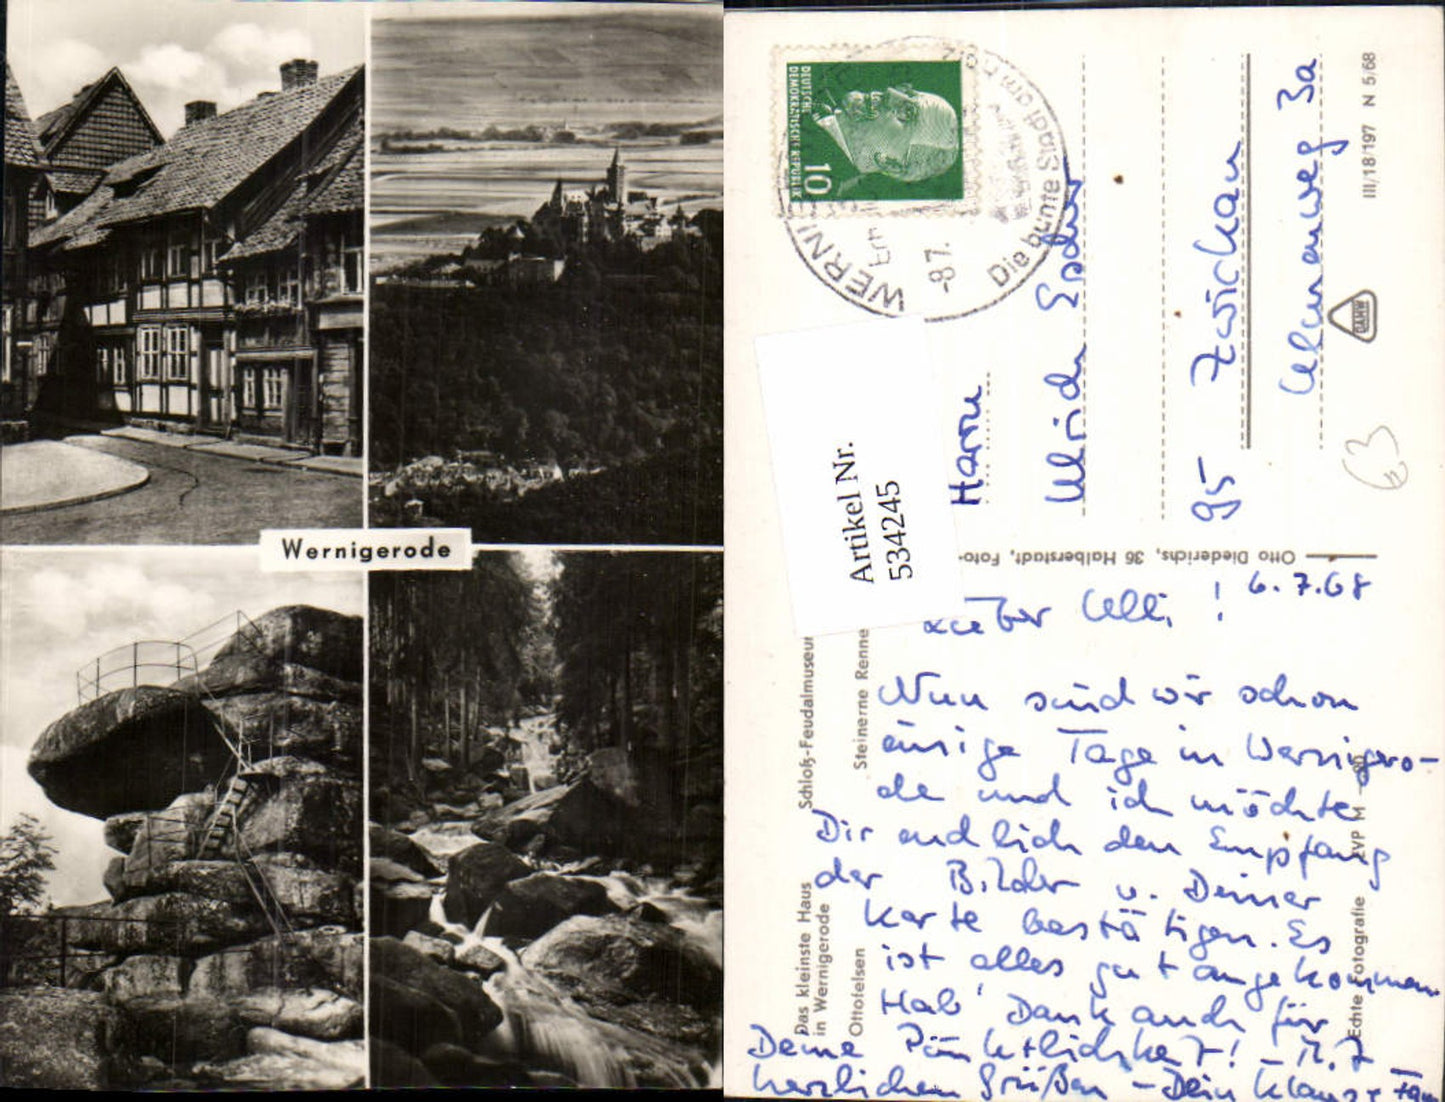 Wernigerode
DEUTSCHE
DEMOKRATISCHE REPUBLIK
10
WERNI
Die bunte Stadt am H
-8.7.
Artikel Nr.
534245
Herrn
Ulrich
95 Zwickau
Ulmenweg 3a
III/18/197 N 5/68
Otto Diederichs, 36 Halberstadt, Foto-
6.7.68
Lieber Ulli!
Nun sind wir schon
einige Tage in Wernigero-
de und ich möchte
Dir endlich den Empfang
der Bilder u. Deiner
Karte bestätigen. Es
ist alles gut angekommen
Hab' Dank auch für
Deine Pünktlichkeit! – M. f
herzlichen Grüßen – Dein Klaus
Das kleinste Haus
in Wernigerode
Schloß-Feudalmuseum
Ottofelsen
Steinerne Renne
Echte Fotografie EVP M -80